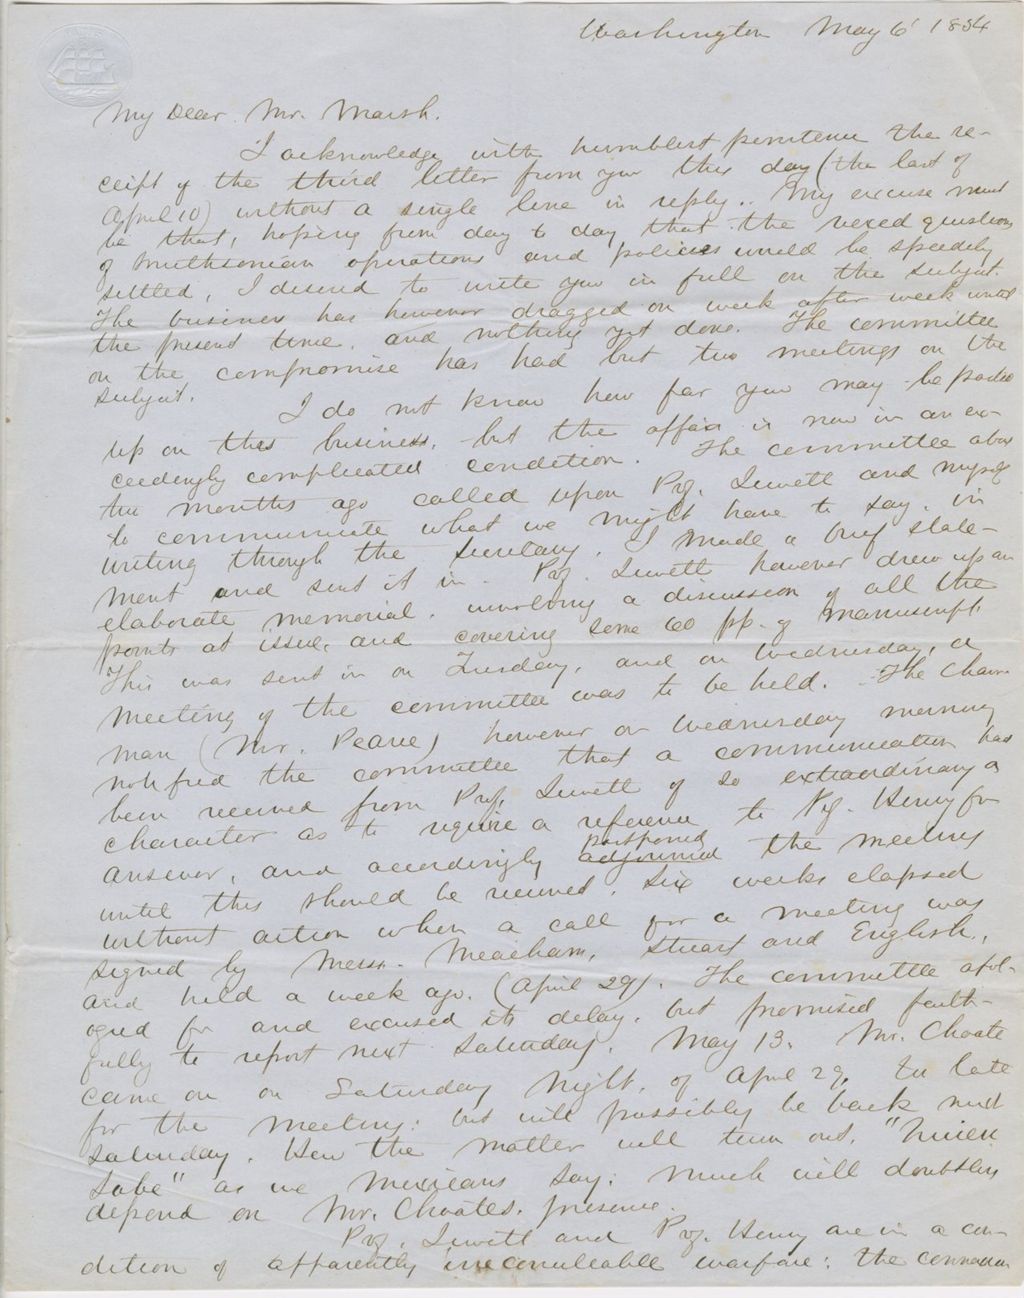 Washington May 6 1854
My Dear Mr. Marsh.
I acknowledge with humblest penitence the re-
ceipt of the third letter from you this day (the last of
April 10) without a single line in reply. My excuse must
be that, hoping from day to day that the vexed questions
of Smithsonian operations and policies would be speedily
settled, I desired to write you in full on the subject.
The business has however dragged on week after week until
the present time, and nothing yet done. The committee
on the compromise has had but two meetings on the
subject.
I do not know how far you may be posted
up on this business, but the affair is now in an ex-
ceedingly complicated condition. The committee about
two months ago called upon Prof. Jewett and myself
to communicate what we might have to say, in
writing through the Secretary. I made a brief state-
ment and sent it in. Prof. Jewett however drew up an
elaborate memorial, involving a discussion of all the
points at issue, and covering some 60 pp. of manuscript.
This was sent in on Tuesday, and on Wednesday, a
meeting of the committee was to be held. The Chair-
man (Mr. Pearce) however on Wednesday morning
notified the committee that a communication has
been received from Prof. Jewett of so extraordinary a
character as to require a reference to Prof. Henry for
answer, and accordingly adjourned postponed the meeting
until this should be received. Six weeks elapsed
without action when a call for a meeting was
signed by Messr. Meacham, Stuart and English,
and held a week ago. (April 29). The committee apol-
ogied for and excused its delay, but promised faith-
fully to report next Saturday, May 13. Mr. Choate
came on on Saturday night, of April 29, too late
for the meeting; but will possibly be back next
Saturday. How the matter will turn out, "Quien
Sabe" as we Mexicans say; much will doubtless
depend on Mr. Choates. presence.
Prof. Jewett and Prof. Henry are in a con-
dition of apparently irreconcileable warfare; the connexion